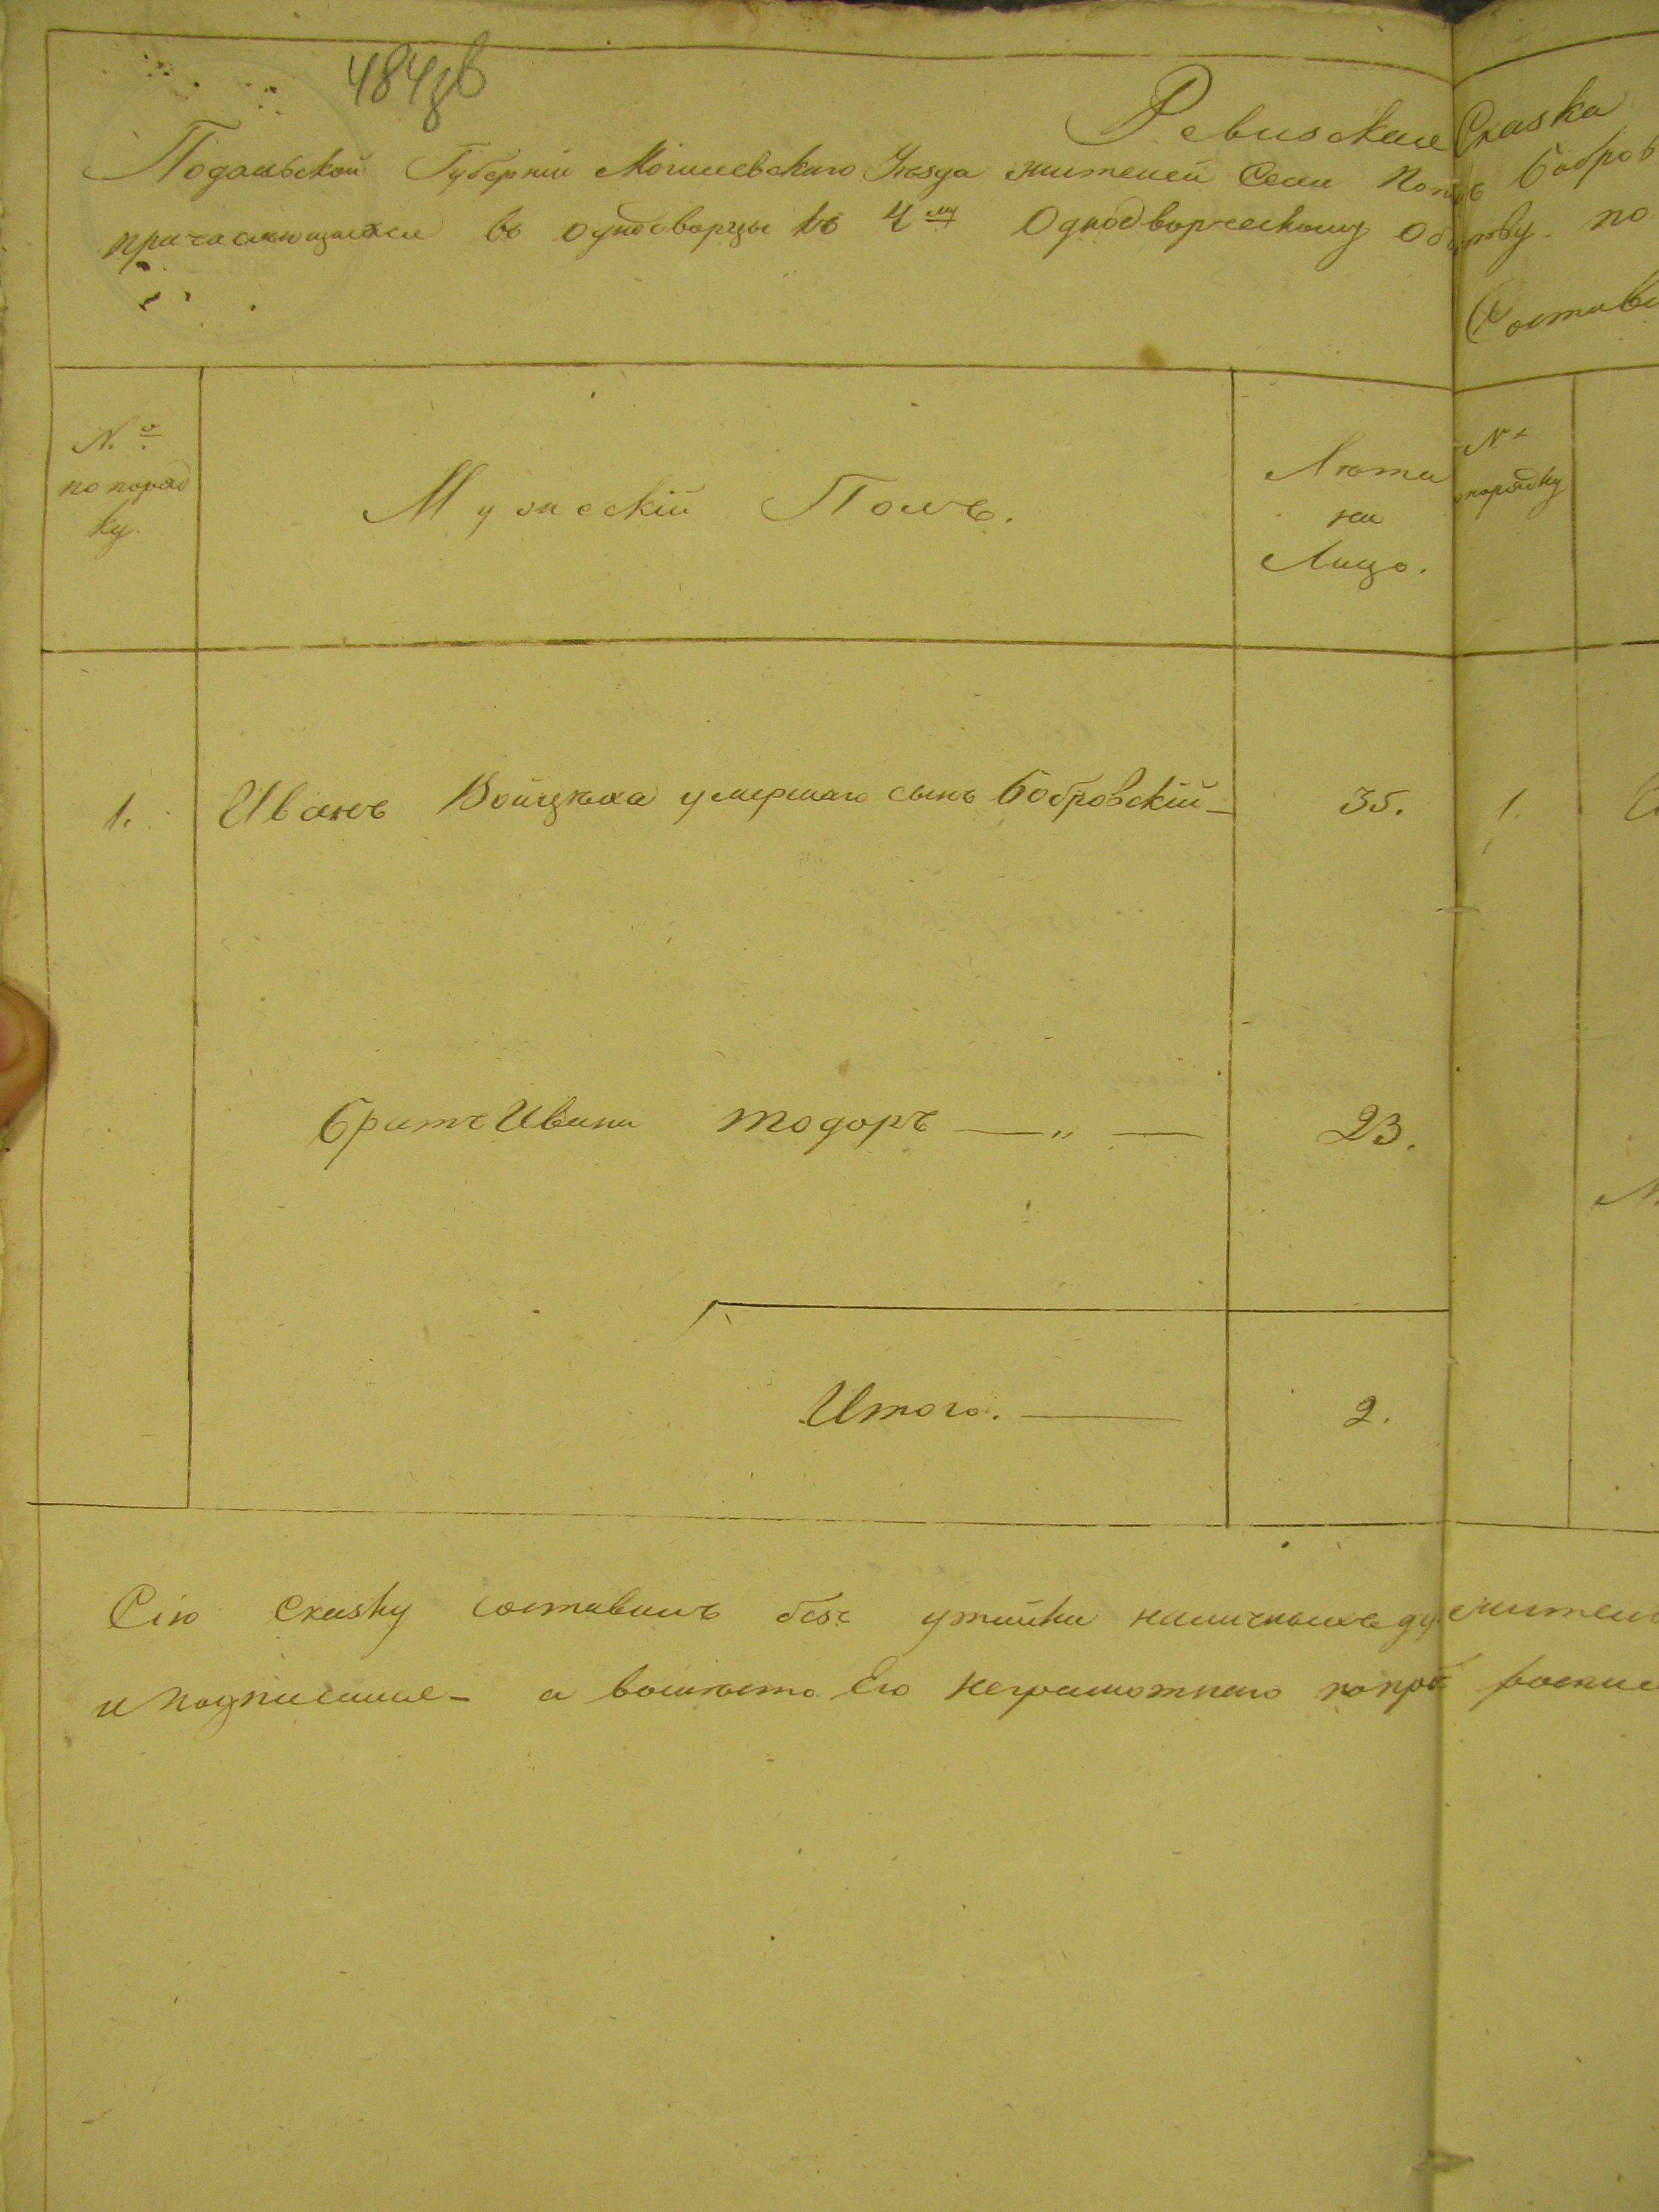 484зв
Ревизская Сказка
Подольской Губерніи Могилевскаго Уѣзда жителей Села Бобров
причисляющихся въ однодворцы къ 4му Однодворческому Обществу. по
Состави
№о по порядку
Мужескій Полъ.
Лѣта на Лицо.
№ порядку
1. Иванъ Войцѣха умершаго сынъ Бобровскій 35. 1.
братъ Ивана Тодоръ — „ — 23.
Итого. — 2.
Сію сказку составилъ безъ утайки наличныхъ жител
и подписался - а вмѣсто Его неграмотнаго